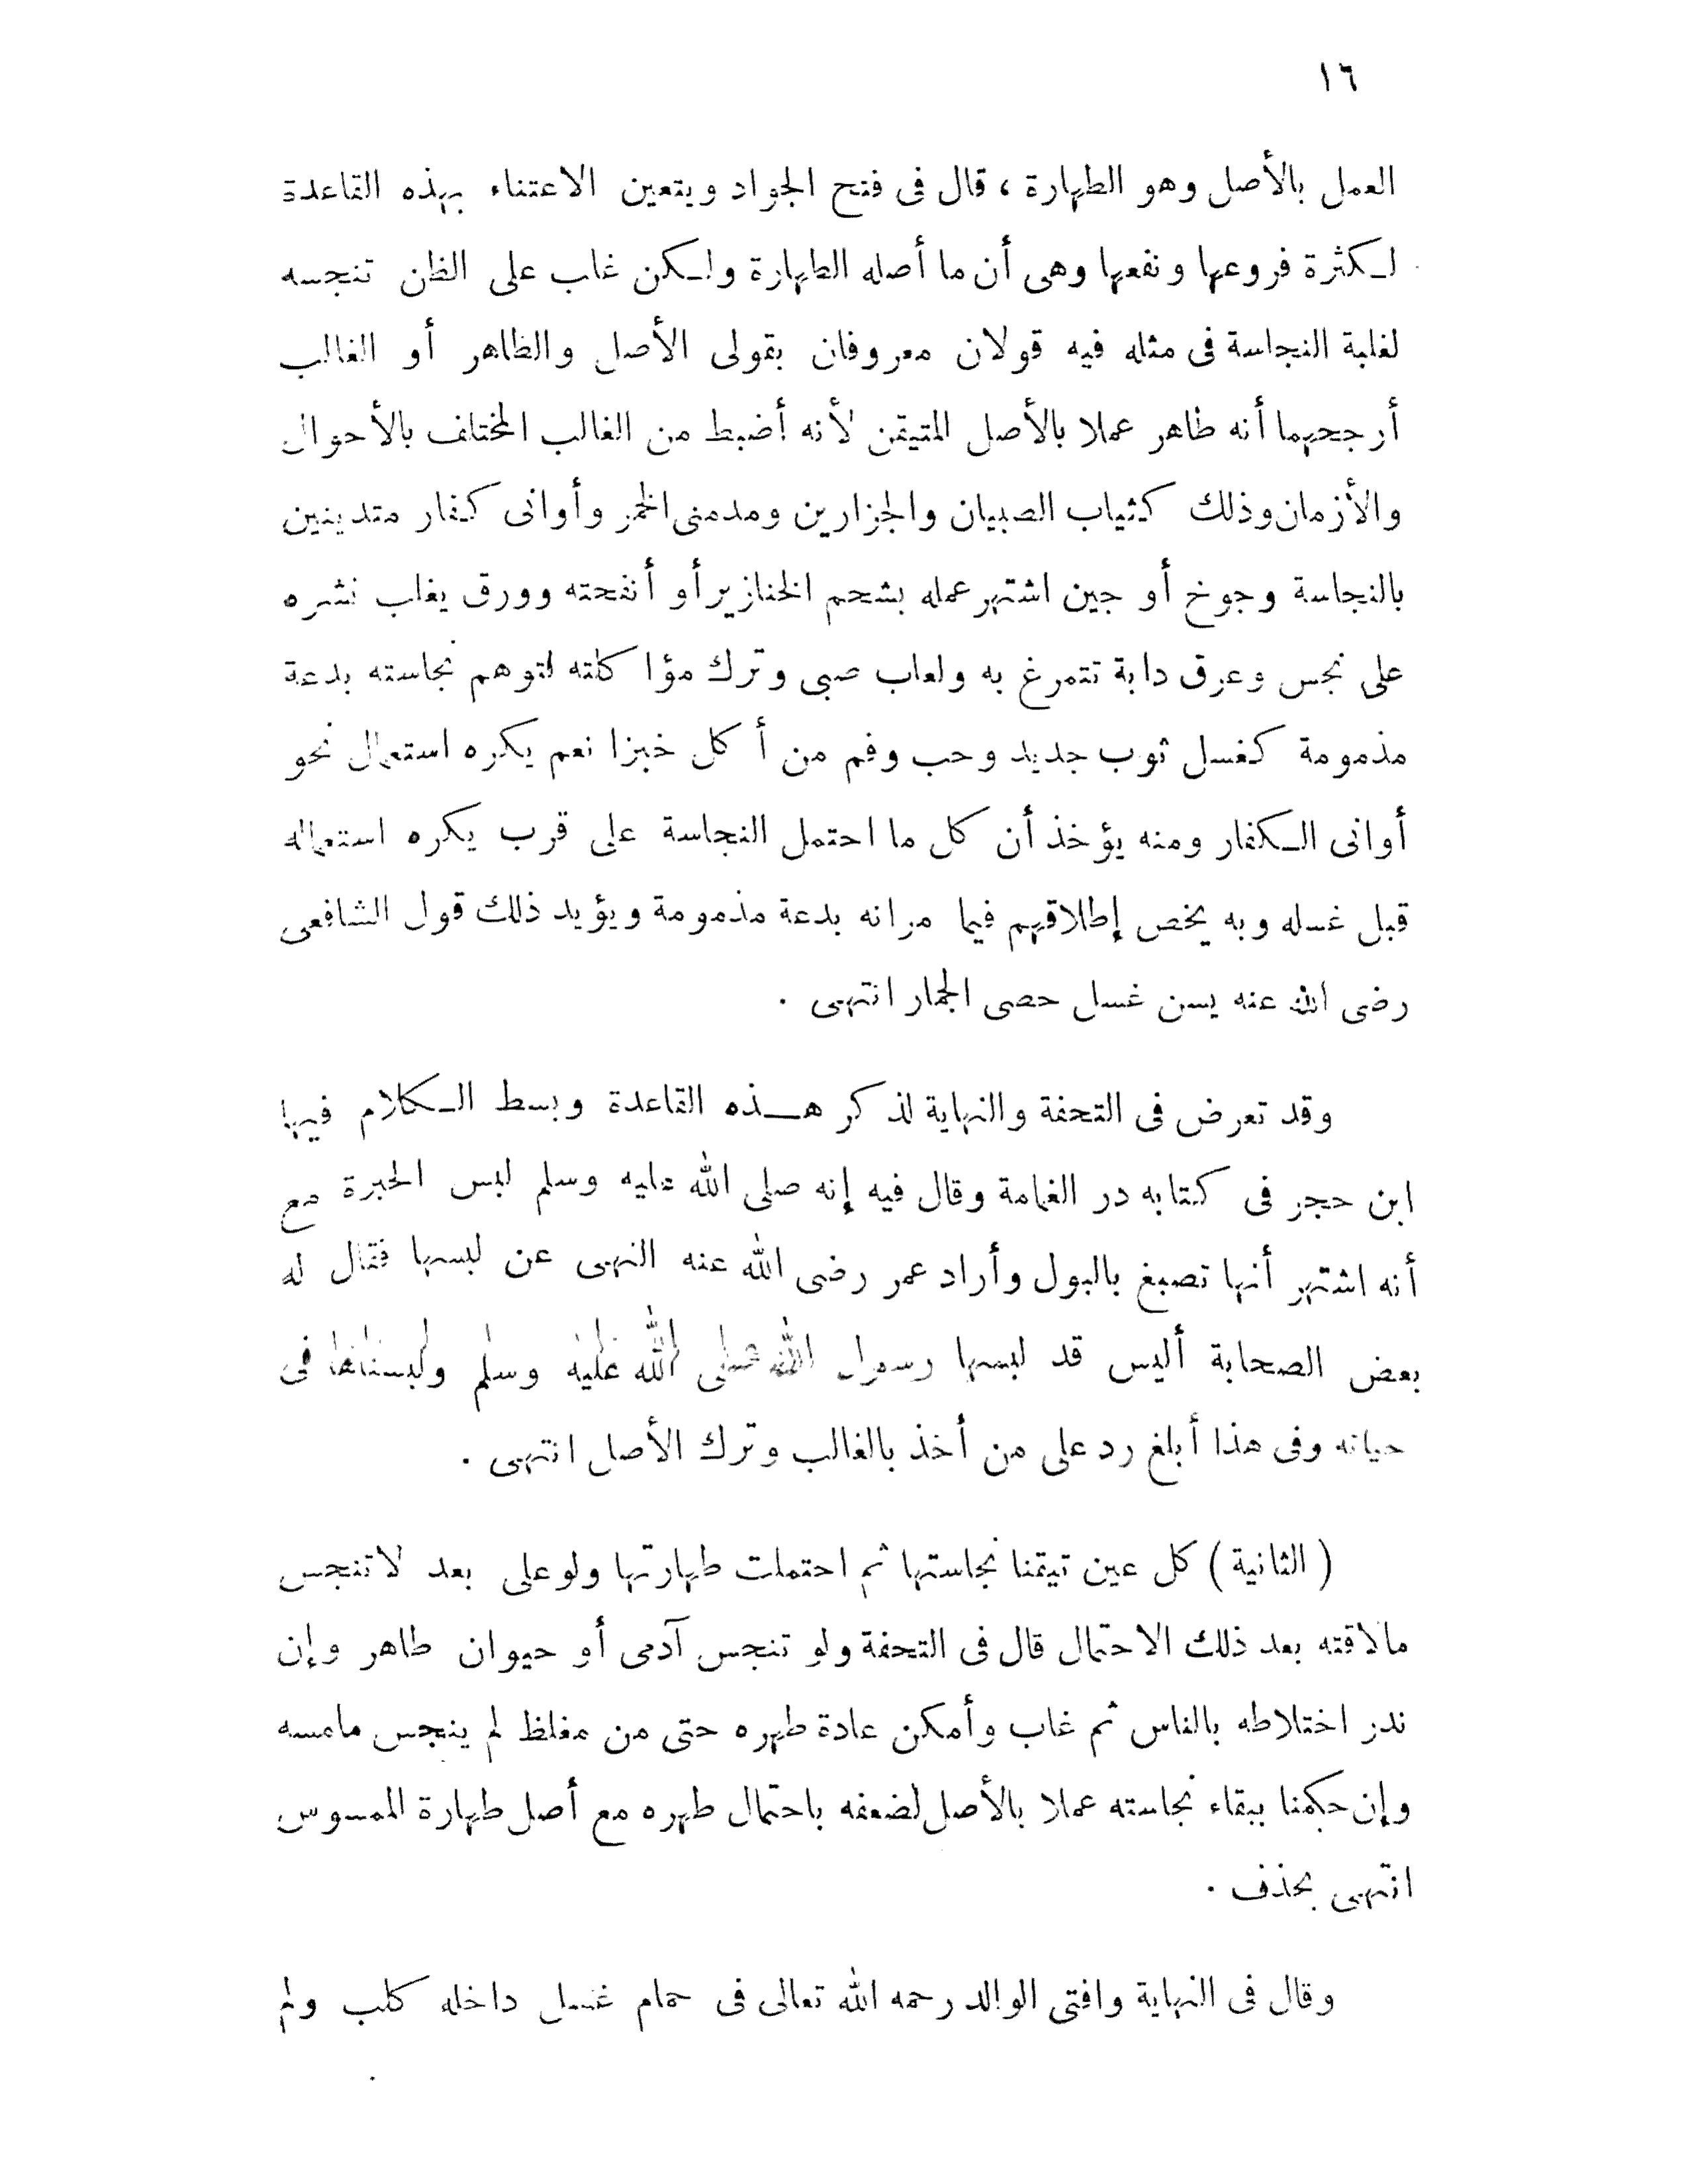 ١٦
العمل بالأصل وهو الطهارة ، قال فى فتح الجواد ويتعين الاعتناء بهذه القاعدة
لكثرة فروعها ونفعها وهى أن ما أصله الطهارة ولكن غاب على الظن تنجسه
لغلبة النجاسة فى مثله فيه قولان معروفان بقولى الأصل والظاهر أو الغالب
أرجحهما أنه طاهر عملا بالأصل المتيقن لأنه أضبط من الغالب المختلف بالأحوال
والأزمان وذلك كثياب الصبيان والجزارين ومدمنى الخمر وأوانى كفار متدينين
بالنجاسة وجوخ أو جبن اشتهر عمله بشحم الخنازير أو أنفحته وورق يغلب نشره
على نجس وعرق دابة تتمرغ به ولعاب صبى وترك مؤاكلته لتوهم نجاسته بدعة
مذمومة كغسل ثوب جديد وحب وفم من أكل خبزا نعم يكره استعمال نحو
أوانى الكفار ومنه يؤخذ أن كل ما احتمل النجاسة على قرب يكره استعماله
قبل غسله وبه يخص إطلاقهم فيما مر انه بدعة مذمومة ويؤيد ذلك قول الشافعى
رضى الله عنه يسن غسل حصى الجمار انتهى .
وقد تعرض فى التحفة والنهاية لذكر هذه القاعدة وبسط الكلام فيها
ابن حجر فى كتابه در الغمامة وقال فيه إنه صلى الله عليه وسلم لبس الحبرة مع
أنه اشتهر أنها تصبغ بالبول وأراد عمر رضى الله عنه النهى عن لبسها فقال له
بعض الصحابة أليس قد لبسها رسول الله صلى الله عليه وسلم ولبسناها فى
حياته وفى هذا أبلغ رد على من أخذ بالغالب وترك الأصل انتهى .
( الثانية ) كل عين تيقنا نجاستها ثم احتملت طهارتها ولو على بعد لا تنجس
مالاقته بعد ذلك الاحتمال قال فى التحفة ولو تنجس آدمى أو حيوان طاهر وإن
ندر اختلاطه بالناس ثم غاب وأمكن عادة طهره حتى من مغلظ لم ينجس مامسه
وإن حكمنا ببقاء نجاسته عملا بالأصل لضعفه باحتمال طهره مع أصل طهارة الممسوس
انتهى بحذف .
وقال فى النهاية وافتى الوالد رحمه الله تعالى فى حمام غسل داخله كلب ولم